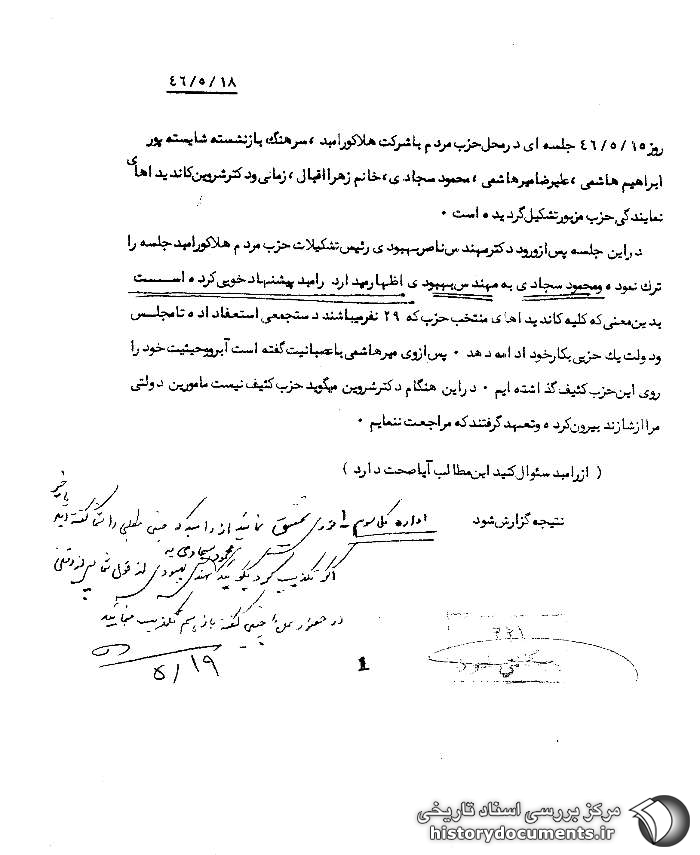 ۴۶/۵/۱۸
روز ۴۶/۵/۱۵ جلسه ای در محل حزب مردم با شرکت هلاکو رامبد ، سرهنگ بازنشسته شایسته پور
ابراهیم هاشمی ، علیرضا میرهاشمی ، محمود سجادی ، خانم زهرا اقبال ، زمانی و دکتر شروین کاندیداهای
نمایندگی حزب مزبور تشکیل گردیده است .
در این جلسه پس از ورود دکتر مهندس ناصر بهبودی رئیس تشکیلات حزب مردم هلاکو رامبد جلسه را
ترک نموده و محمود سجادی به مهندس بهبودی اظهار میدارد رامبد پیشنهاد خوبی کرده است
بدین معنی که کلیه کاندیداهای منتخب حزب که ۲۹ نفر میباشند دستجمعی استعفا داده تا مجلس
و دولت یک حزبی بکار خود ادامه دهد . پس از وی میرهاشمی با عصبانیت گفته است آبرو و حیثیت خود را
روی این حزب کثیف گذاشته ایم . در این هنگام دکتر شروین میگوید حزب کثیف نیست مامورین دولتی
مرا از شازند بیرون کرده و تعهد گرفتند که مراجعت ننمایم .
( از رامبد سئوال کنید این مطالب آیا صحت دارد )
نتیجه گزارش شود
اداره کل سوم تحقیق نمائید از رامبد که چنین مطلبی را شما گفته اید یا خیر
اگر تکذیب کرد بگوئید مهندس بهبودی از قول شما
محمود سجادی به
در حضور گفته باز هم تکذیب مینمائید
۵/۱۹
1
۳۲۱
مرکز بررسی اسناد تاریخی
historydocuments.ir